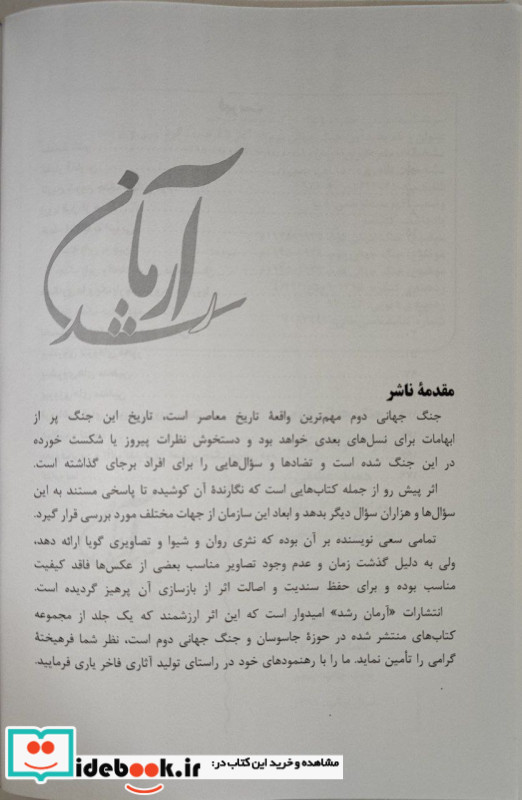 آرمان
رشد
مقدمهٔ ناشر
جنگ جهانی دوم مهم‌ترین واقعهٔ تاریخ معاصر است، تاریخ این جنگ پر از
ابهامات برای نسل‌های بعدی خواهد بود و دستخوش نظرات پیروز یا شکست خورده
در این جنگ شده است و تضادها و سؤال‌هایی را برای افراد برجای گذاشته است.
اثر پیش رو از جمله کتاب‌هایی است که نگارندهٔ آن کوشیده تا پاسخی مستند به این
سؤال‌ها و هزاران سؤال دیگر بدهد و ابعاد این سازمان از جهات مختلف مورد بررسی قرار گیرد.
تمامی سعی نویسنده بر آن بوده که نثری روان و شیوا و تصاویری گویا ارائه دهد،
ولی به دلیل گذشت زمان و عدم وجود تصاویر مناسب بعضی از عکس‌ها فاقد کیفیت
مناسب بوده و برای حفظ سندیت و اصالت اثر از بازسازی آن پرهیز گردیده است.
انتشارات «آرمان رشد» امیدوار است که این اثر ارزشمند که یک جلد از مجموعه
کتاب‌های منتشر شده در حوزهٔ جاسوسان و جنگ جهانی دوم است، نظر شما فرهیختهٔ
گرامی را تأمین نماید. ما را با رهنمودهای خود در راستای تولید آثاری فاخر یاری فرمایید.
مشاهده و خرید این کتاب در:
idebook.ir